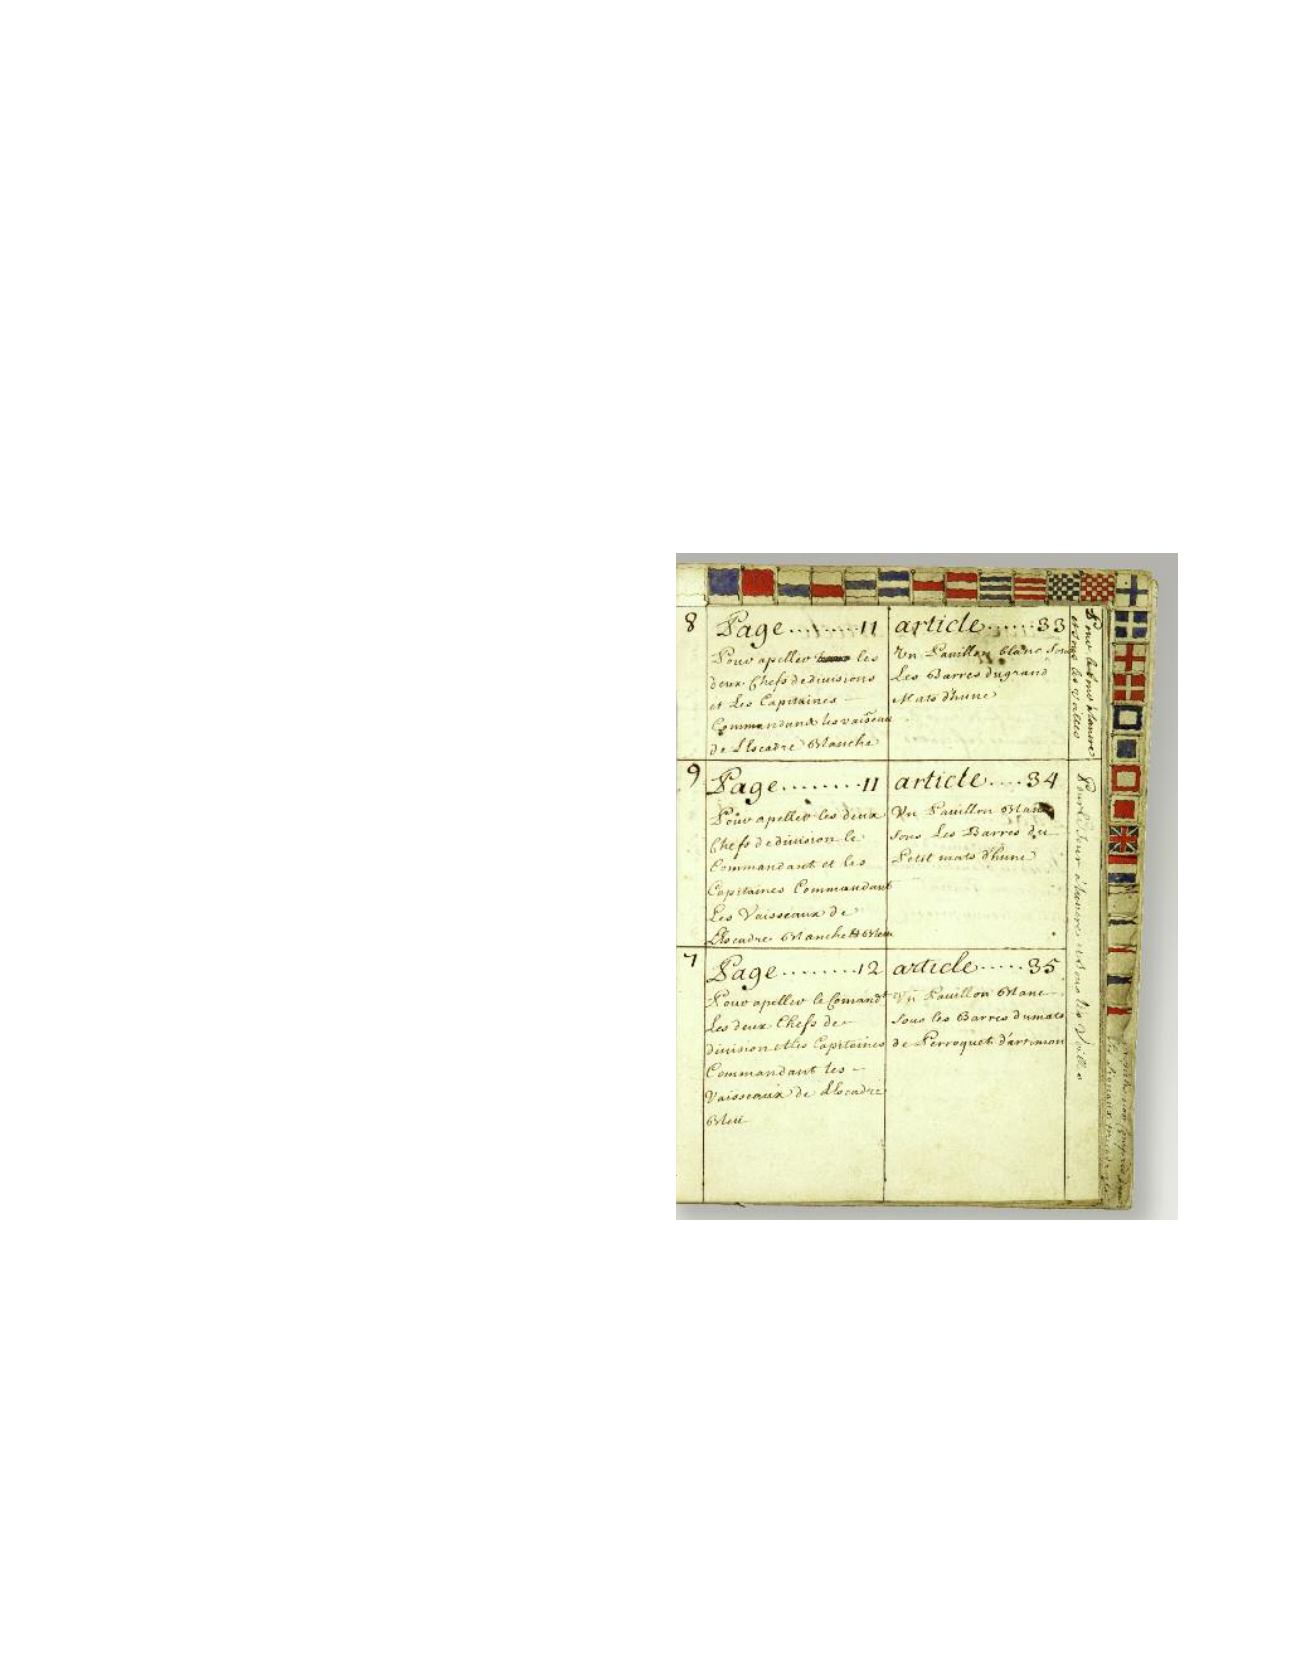 8
Page........11
Pour apeller les
deux Chefs dedivisions
et Les Capitaines —
Commandant les vaiseau
de L'Escadre Blanche
article.....33
Un Pavillon blanc sous
Les Barres dugrand
Mats d'hune
9
Page........11
Pour apeller les deux
Chefs dedivision le
Commandant et les
Capitaines Commandant
Les Vaisseaux de
L'Escadre Blanche Et Bleu
article....34
Un Pavillon Blanc
sous Les Barres du
Petit mats d'hune
7
Page........12
Pour apeller le Comandt
Les deux Chefs de
division et les Capitaines
Commandant les —
Vaisseaux de L'Escadre
Bleu
article.....35
Un Pavillon Blanc
sous les Barres dumats
de Perroquet d'artimon
Pour
et sous les Voilles
Pour le Jour à l'ancre et sous les Voilles